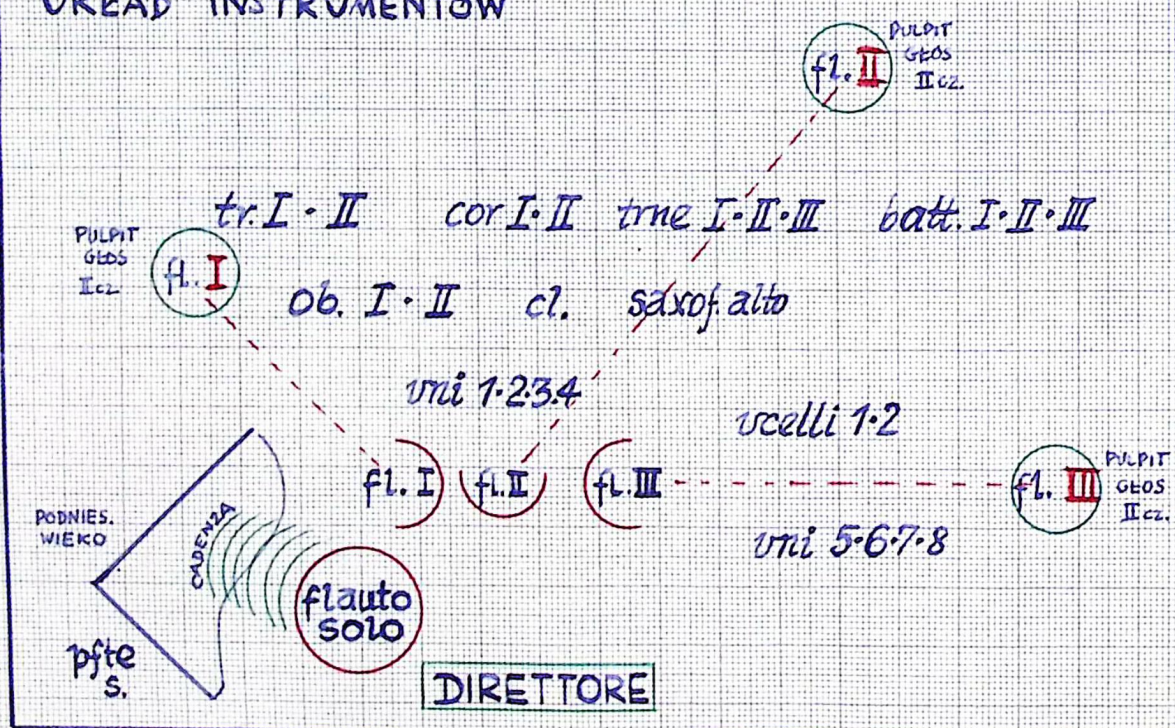 UKŁAD INSTRUMENTÓW
fl. II
PULPIT
GŁOS
II cz.
tr. I · II cor I · II trne I · II · III batt. I · II · III
PULPIT
GŁOS
II cz.
fl. I
Ob. I · II cl. saxof. alto
vni 1·2·3·4
vcelli 1·2
fl. I fl. II fl. III
fl. III
PULPIT
GŁOS
II cz.
vni 5·6·7·8
PODNIES.
WIEKO
CADENZA
flauto
solo
pfte
s.
DIRETTORE